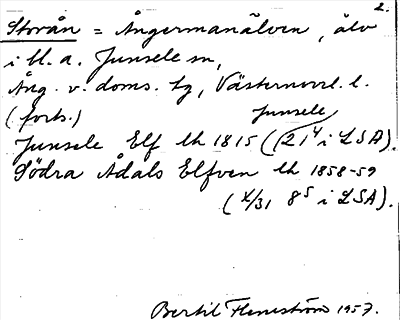 2.
Storån = Ångermanälven, älv
i bl. a. Junsele sn,
Ång. v. doms. tg, Västernorrl. l.
(forts.) Junsele
Junsele Elf lk 1815 (21⁴ i LSA).
Södra Ådals Elfven lk 1858-59
(X/31 8⁵ i LSA).
Bertil Flemström 1957.